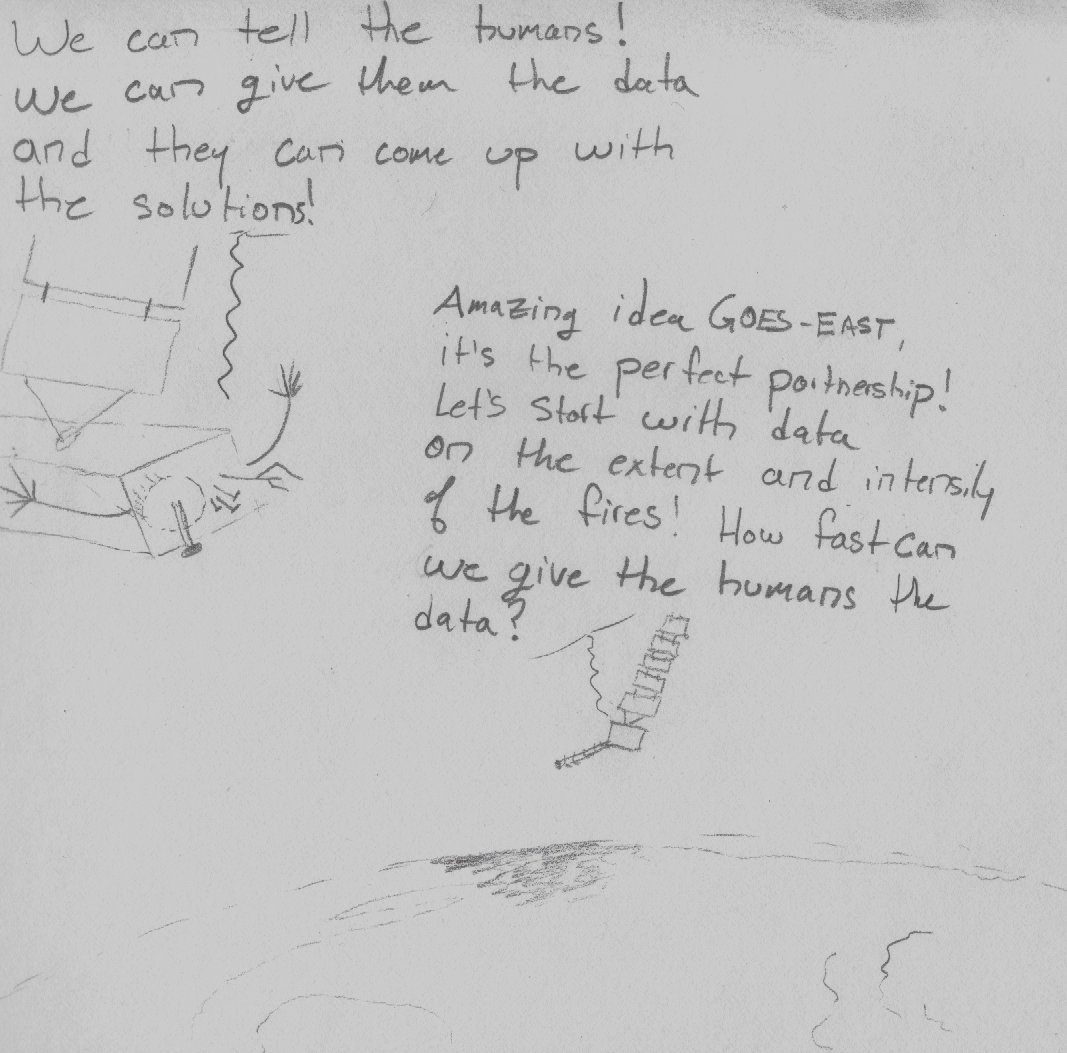 We can tell the humans!
we can give them the data
and they can come up with
the solutions!
Amazing idea GOES-EAST,
it's the perfect partnership!
Let's start with data
on the extent and intensity
of the fires! How fast can
we give the humans the
data?